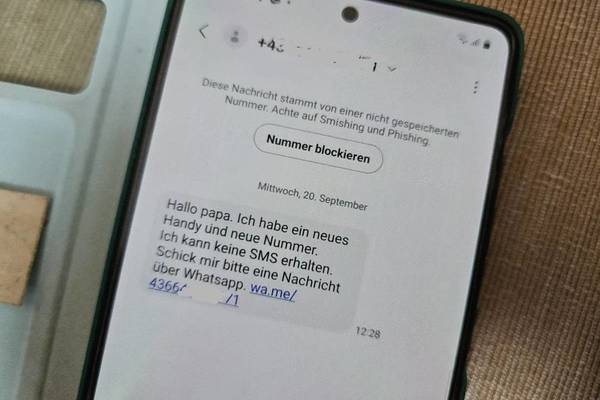 Diese Nachricht stammt von einer nicht gespeicherten
Nummer. Achte auf Smishing und Phishing.
Nummer blockieren
Mittwoch, 20. September
Hallo papa. Ich habe ein neues
Handy und neue Nummer.
Ich kann keine SMS erhalten.
Schick mir bitte eine Nachricht
über Whatsapp. wa.me/
4366 /1
12:28